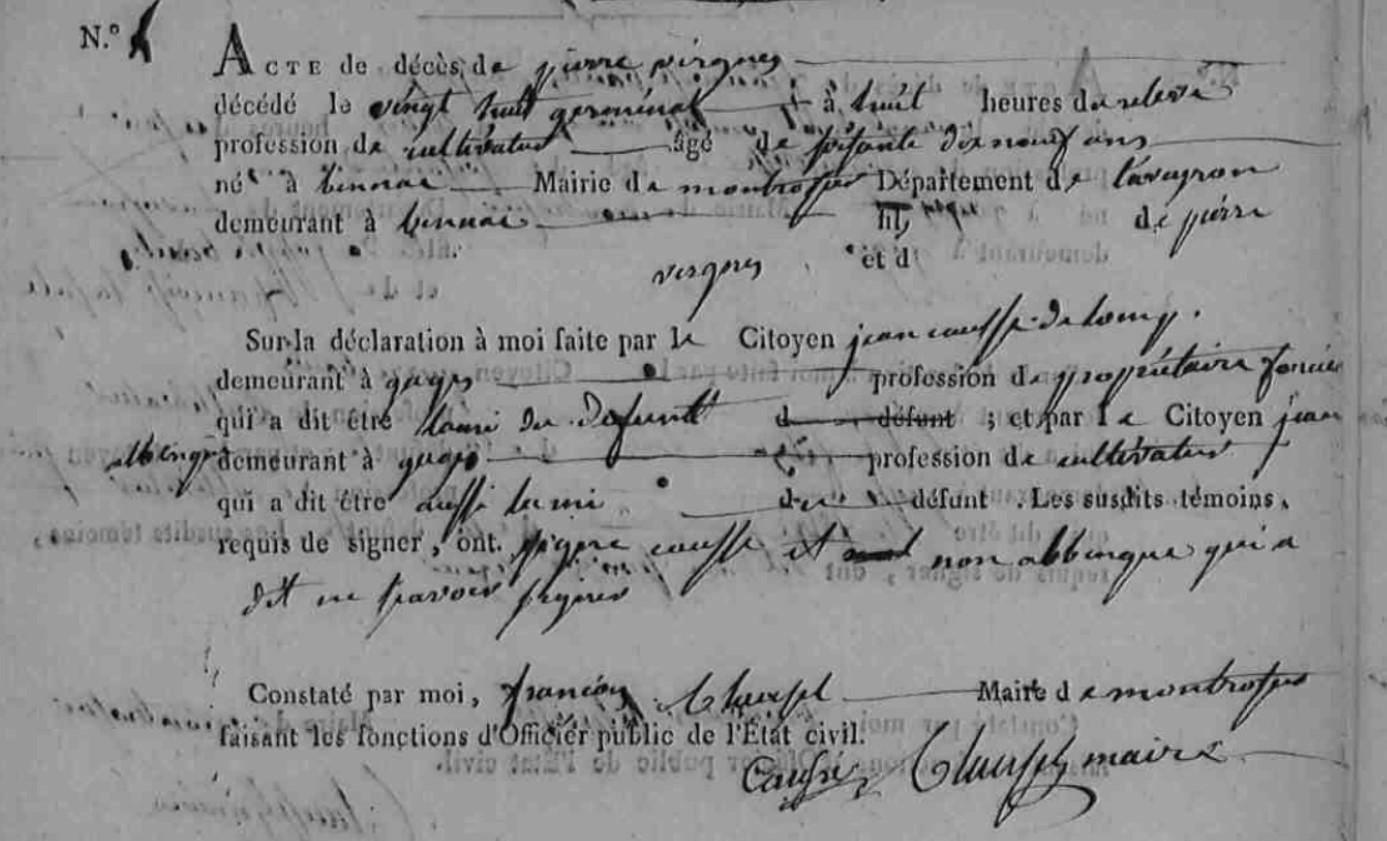 N.º
ACTE de décès de pierre virgnes
décédé le vingt huit germinal à huit heures du
profession de cultivateur âgé de soisante dix neuf ans
né à binnac Mairie de montrosier Département de laveyron
demeurant à binnac fils de pierre
virgnes et d
Sur la déclaration à moi faite par le Citoyen jean
demeurant à gages profession de propriétaire foncier
qui a dit être du defunt d défunt ; et par le Citoyen jean
demeurant à gages profession de cultivateur
qui a dit être aussi lami du défunt . Les susdits témoins,
requis de signer, ont. signé et non qui a
dit ne savoir signer
Constaté par moi, françois Maire de montrosier
faisant les fonctions d'Officier public de l'État civil.
maire